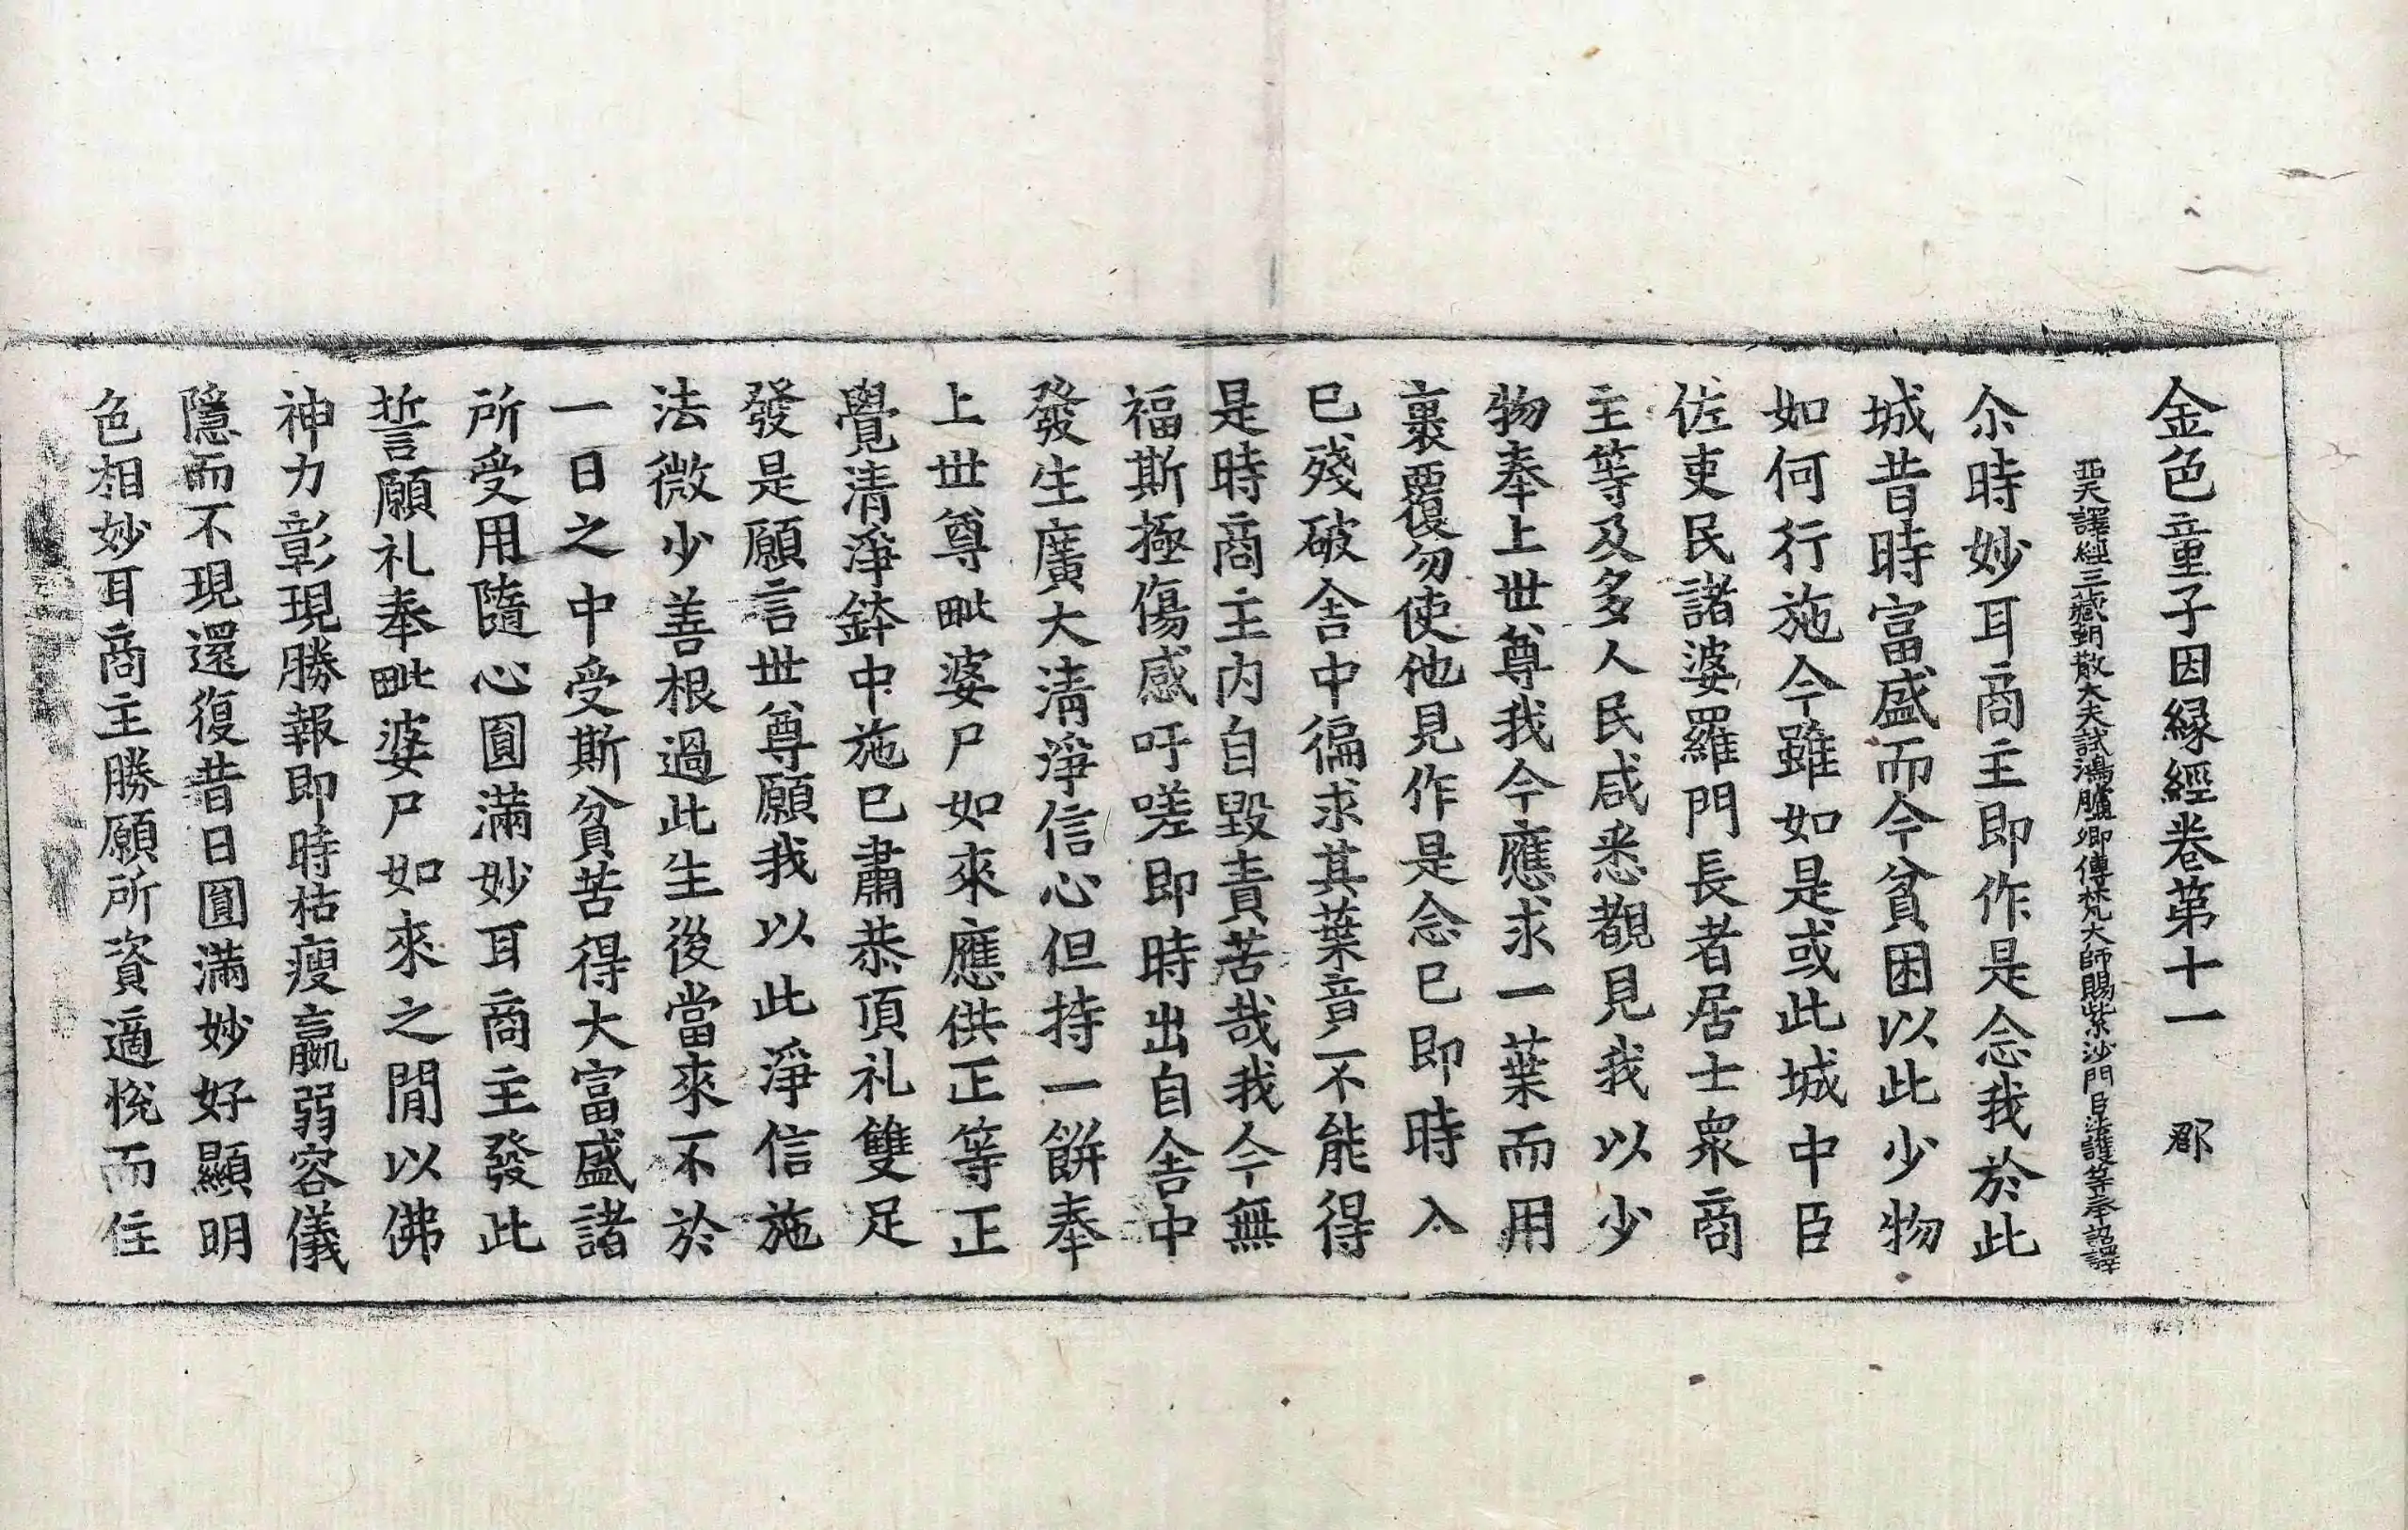 金色童子因縁經卷第十一　郡
西天譯經三藏朝散大夫試鴻臚卿傳梵大師賜紫沙門臣法護等奉詔譯
尒時妙耳商主即作是念我於此
城昔時富盛而今貧困以此少物
如何行施今雖如是或此城中臣
佐吏民諸婆羅門長者居士衆商
主等及多人民咸悉覩見我以少
物奉上世尊我今應求一葉而用
裹覆勿使他見作是念已即時入
已殘破舍中徧求其葉竟不能得
是時商主内自毀責苦哉我今無
福斯極傷感吁嗟即時出自舍中
發生廣大清淨信心但持一餅奉
上世尊毗婆尸如來應供正等正
覺清淨鉢中施已肅恭頂礼雙足
發是願言世尊願我以此淨信施
法微少善根過此生後當來不於
一日之中受斯貧苦得大富盛諸
所受用隨心圓滿妙耳商主發此
誓願礼奉毗婆尸如來之閒以佛
神力彰現勝報即時枯瘦羸弱容儀
隱而不現還復昔日圓滿妙好顯明
色相妙耳商主勝願所資適悅而住